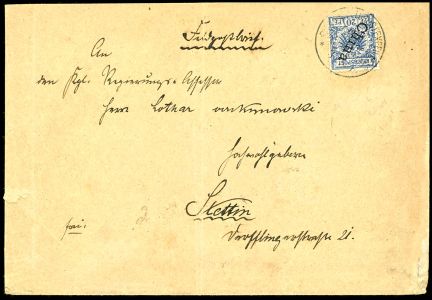 Feldpostbrief.
CHINA
An
den Kgl. Regierungs-Assessor
Herrn Lothar
Hochwohlgeboren
Stettin
frei.
Derfflingerstrasse 21.